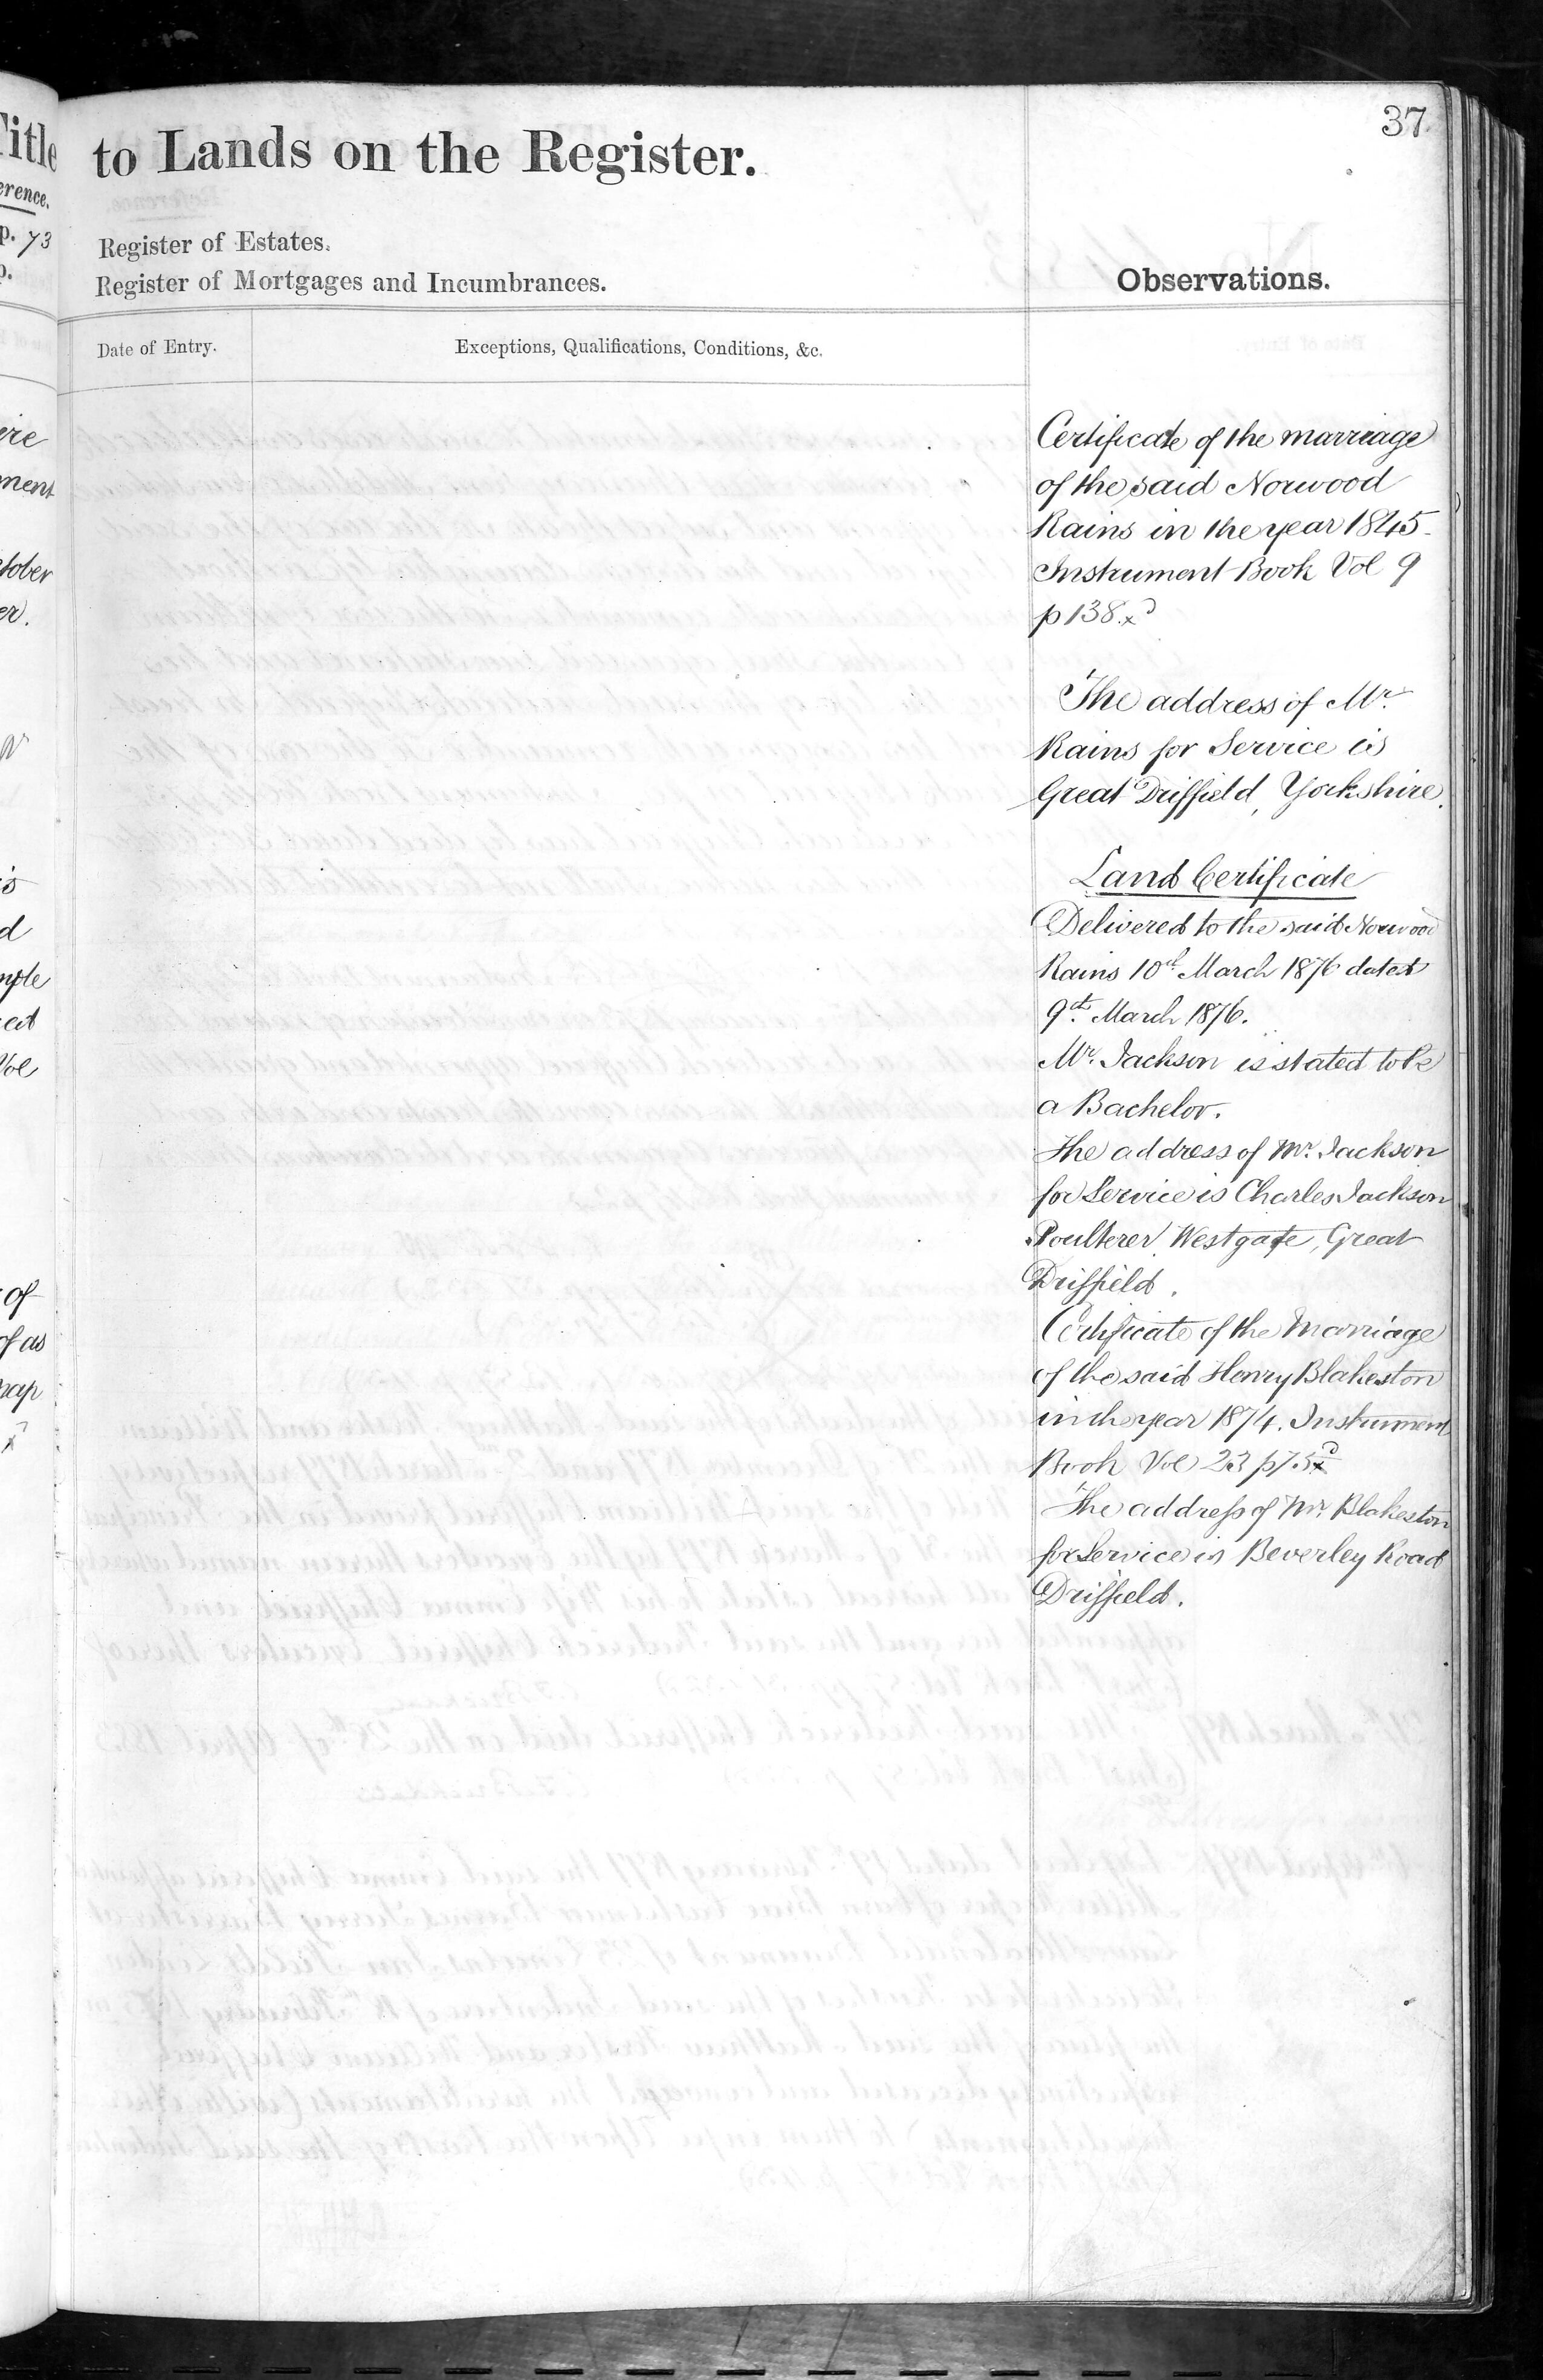 37.
Title
to Lands on the Register.
erence.
p. 73
p.
Register of Estates.
Register of Mortgages and Incumbrances.
Observations.
Date of Entry.
Exceptions, Qualifications, Conditions, &c.
ment
ctober
er.
d
Vol
of
of as
map
Certificate of the marriage
of the said Norwood
Rains in the year 1845.
Instrument Book Vol 9
p 138.
The address of Mr.
Rains for Service is
Great Driffield, Yorkshire.
Land Certificate
Delivered to the said Norwood
Rains 10th March 1876 dated
9th March 1876.
Mr. Jackson is stated to be
a Bachelor.
The address of Mr. Jackson
for Service is Charles Jackson
Poulterer Westgate, Great
Driffield.
Certificate of the Marriage
of the said Henry Blakeston
in the year 1874. Instrument
Book Vol 23
The address of Mr. Blakeston
for Service is Beverley Road
Driffield.